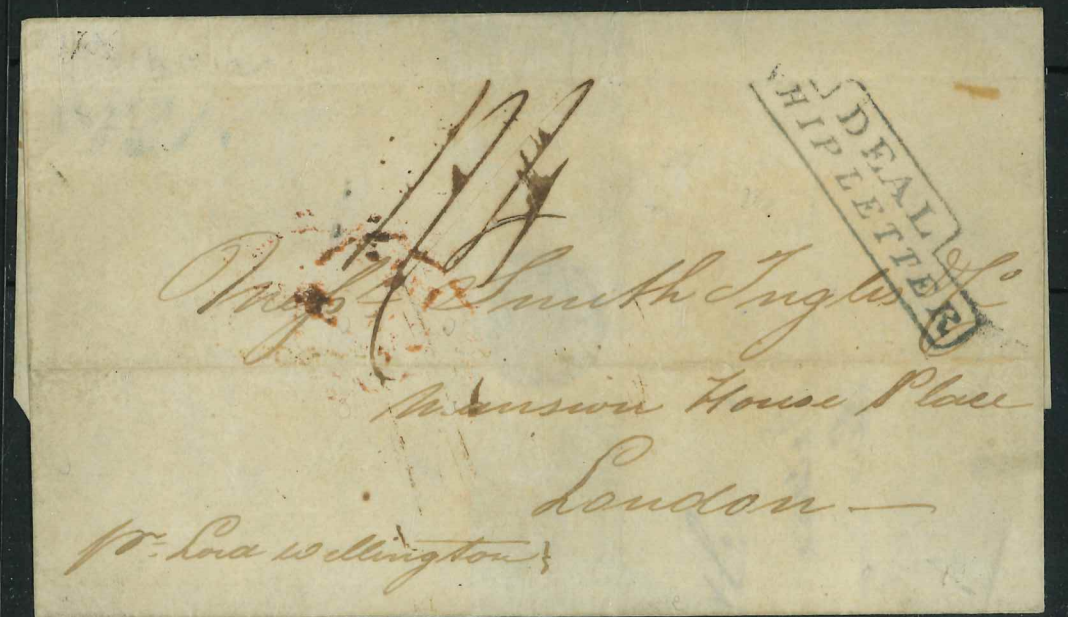 DEAL
SHIP LETTER
Messrs Smith Inglis & Co
Mansion House Place
London
pr Lord Wellington